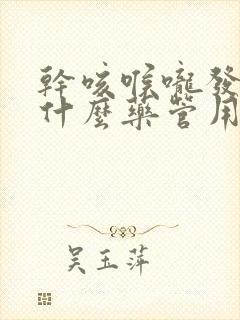 幹咳喉嚨發
什麼藥管用
吴玉萍